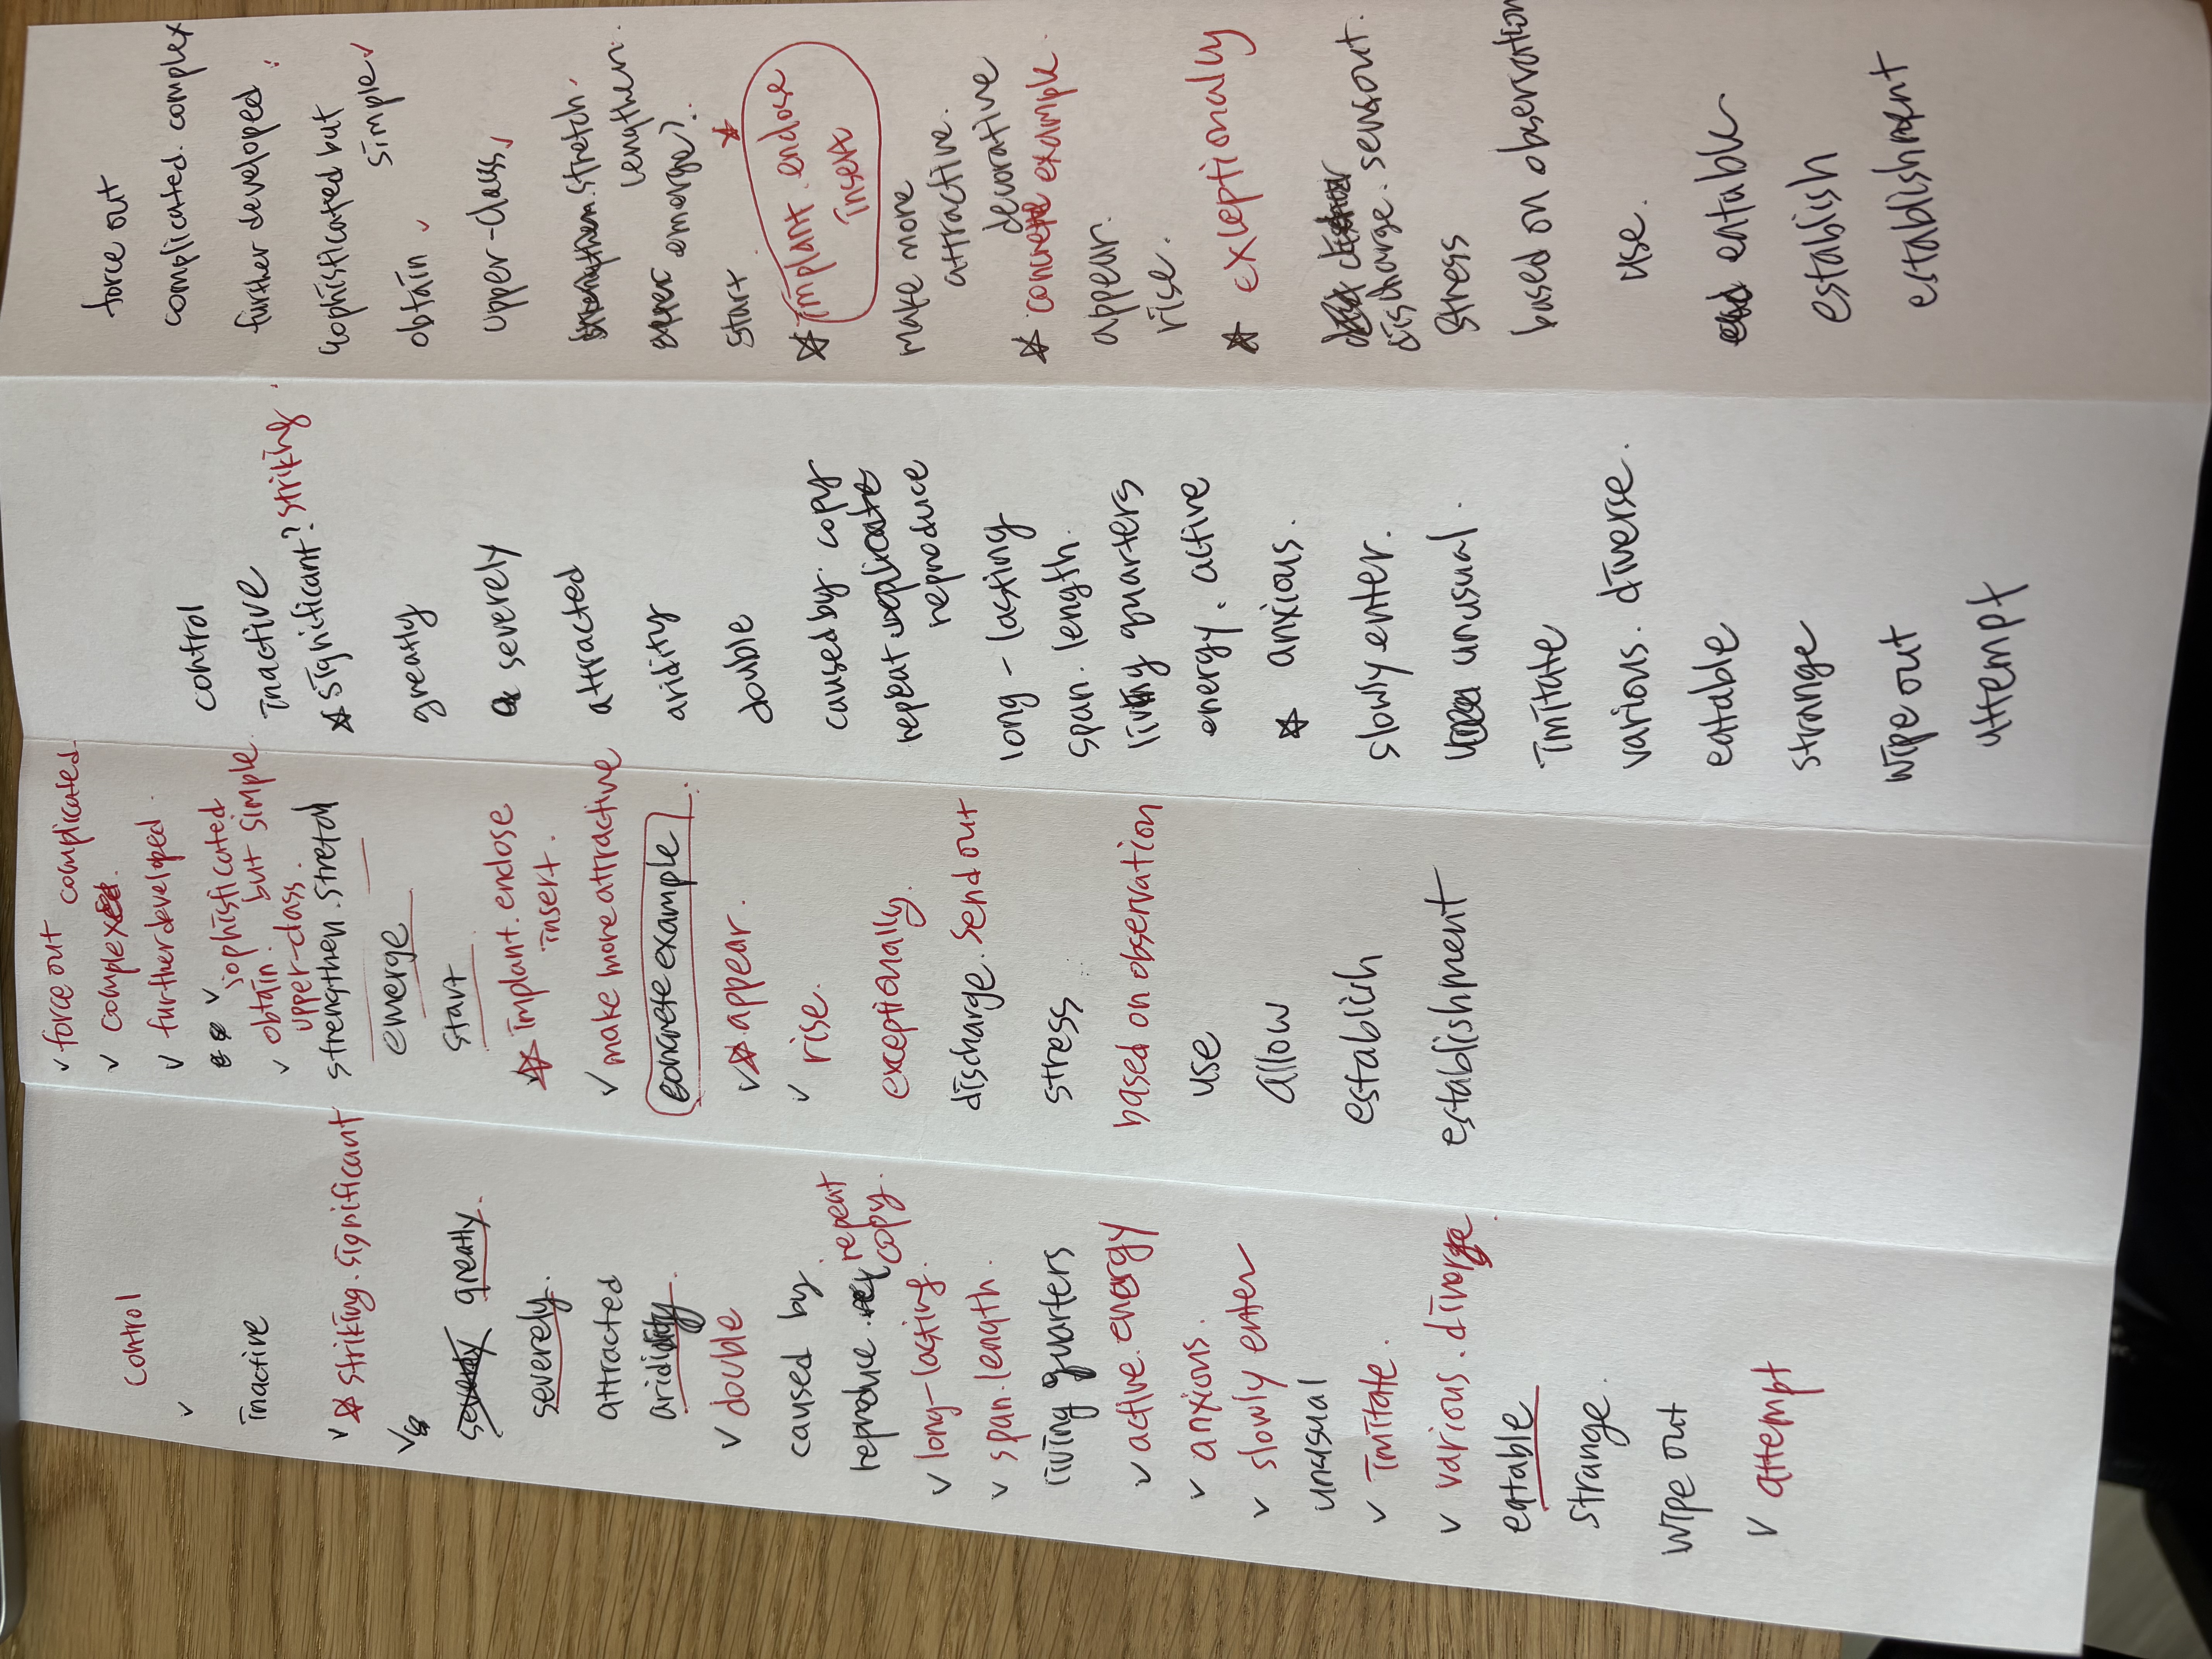 control
inactive
striking. significant
severely greatly.
severely.
attracted
aridity.
double
caused by.
reproduce. repeat
copy.
long-lasting.
span. length.
living quarters
active. energy
anxious.
slowly enter
unusual
imitate.
various. diverse
eatable
strange.
wipe out
attempt
force out complicated.
complex.
further developed.
sophisticated
obtain. but simple
upper-class.
strengthen. stretch
emerge
start
implant. enclose
insert.
make more attractive
concrete example
appear.
rise.
exceptionally.
discharge. send out
stress
based on observation
use
allow
establish
establishment
control
inactive
significant? striking.
greatly
severely
attracted
aridity
double
caused by. copy
repeat replicate
reproduce
long-lasting
span. length.
living quarters
energy. active
anxious.
slowly enter.
unusual.
imitate
various. diverse.
eatable
strange
wipe out
attempt
force out
complicated. complex
further developed.
sophisticated but
simple
obtain
upper-class
strengthen. stretch.
lengthen.
emerge?
start
implant. enclose
insert
make more
attractive.
decorative
concrete example.
appear.
rise.
exceptionally
discharge. sensout.
stress
based on observation
use.
eatable
establish
establishment